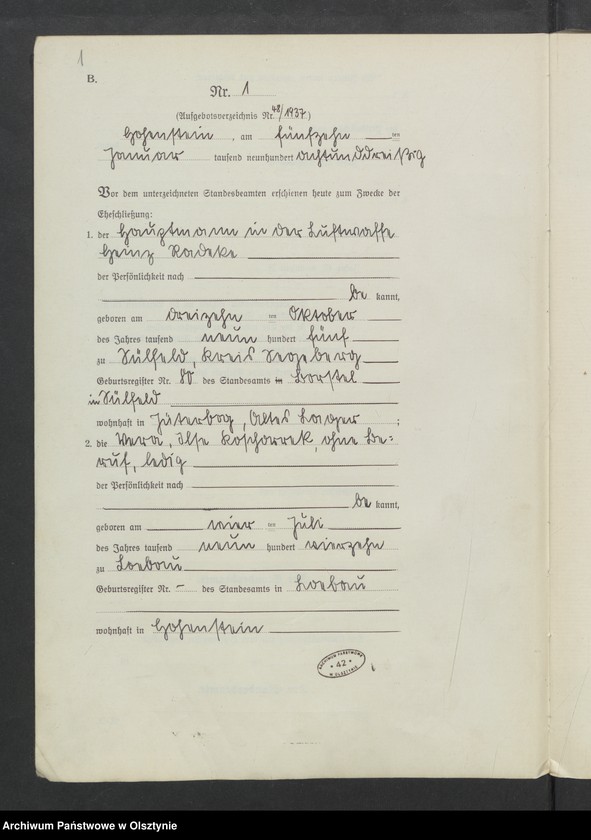 1
B.
Nr. 1
(Aufgebotsverzeichnis Nr. 48/1937)
Hohenstein, am fünfzehn ten
Januar tausend neunhundert achtunddreißig
Vor dem unterzeichneten Standesbeamten erschienen heute zum Zwecke der
Eheschließung:
1. der Hauptmann in der Luftwaffe
Heinz Radeke
der Persönlichkeit nach
be kannt,
geboren am dreizehn ten Oktober
des Jahres tausend neun hundert fünf
zu Sülfeld, Kreis Segeberg
Geburtsregister Nr. 80 des Standesamts in Borstel
in Sülfeld
wohnhaft in Jüterbog, Altes Lager ;
2. die Vera, Ilse Koschorrek, ohne Be=
ruf, ledig
der Persönlichkeit nach
be kannt,
geboren am vier ten Juli
des Jahres tausend neun hundert vierzehn
zu Loebau
Geburtsregister Nr. – des Standesamts in Loebau
wohnhaft in Hohenstein
ARCHIWUM PAŃSTWOWE
* 42 *
W OLSZTYNIE
Archiwum Państwowe w Olsztynie